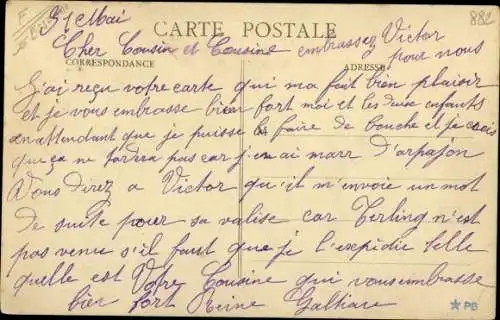 51 Mai
CARTE POSTALE
882
Cher Cousin et Cousine embrassez Victor
pour nous
CORRESPONDANCE
ADRESSE
J'ai reçu votre carte qui ma fait bien plaisir
et je vous embrasse bien fort moi et les deux enfants
en attendant que je puisse le faire de bouche et je crois
que ça ne tardera pas car j'en ai marr d'arpajon
Vous direz a Victor qu'il m'envoie un mot
de suite pour sa valise car Terling n'est
pas venu s'il faut que je l'expédie telle
quelle est Votre Cousine qui vous embrasse
bien fort Reine Galhiare
PB